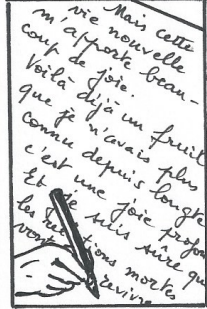 Mais cette
vie nouvelle
m'apporte beau-
coup de joie.
Voilà déjà un fruit
que je n'avais plus
connu depuis longte
c'est une joie profon
Et je suis sûre qu
les re tions mortes
vont revivre